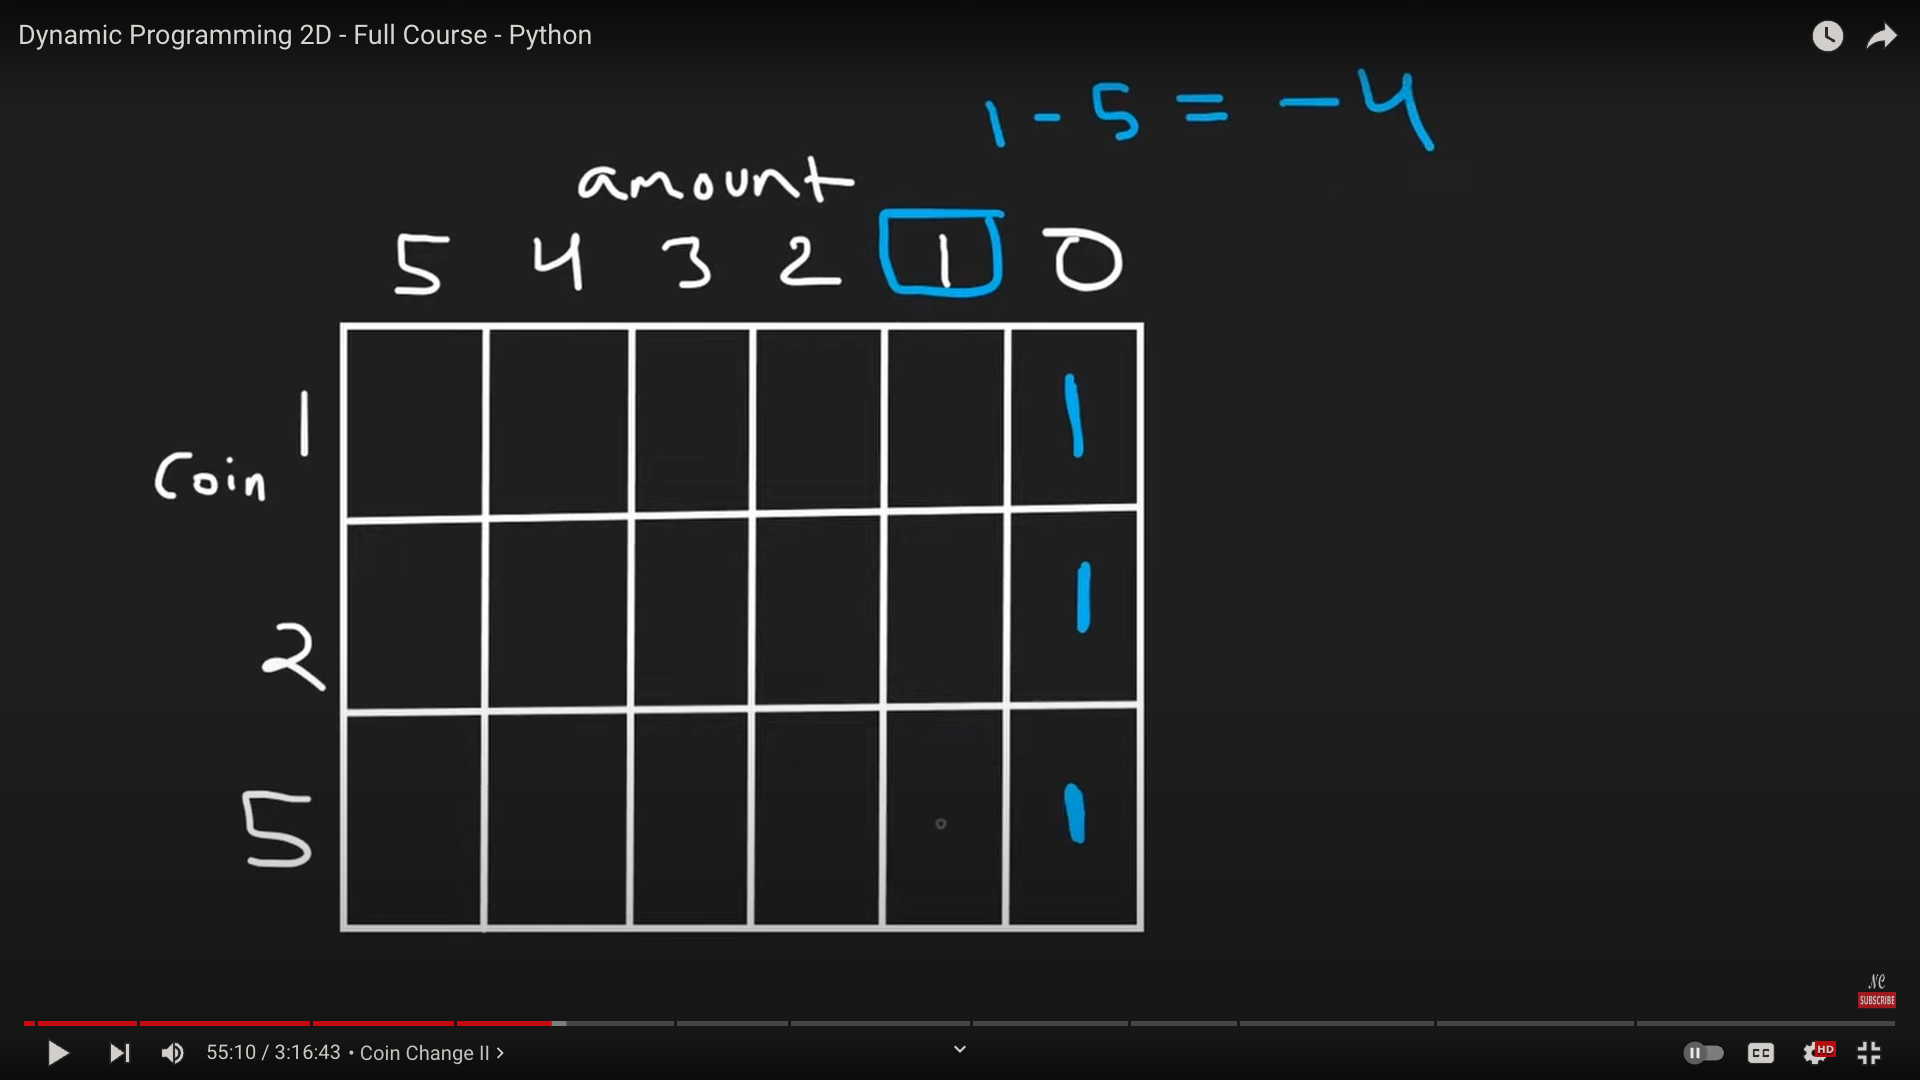 Dynamic Programming 2D - Full Course - Python
1 - 5 = - 4
amount
5 4 3 2 1 0
1 1
Coin
1
2
5 1
NC
SUBSCRIBE
55:10 / 3:16:43 • Coin Change II >
CC
HD